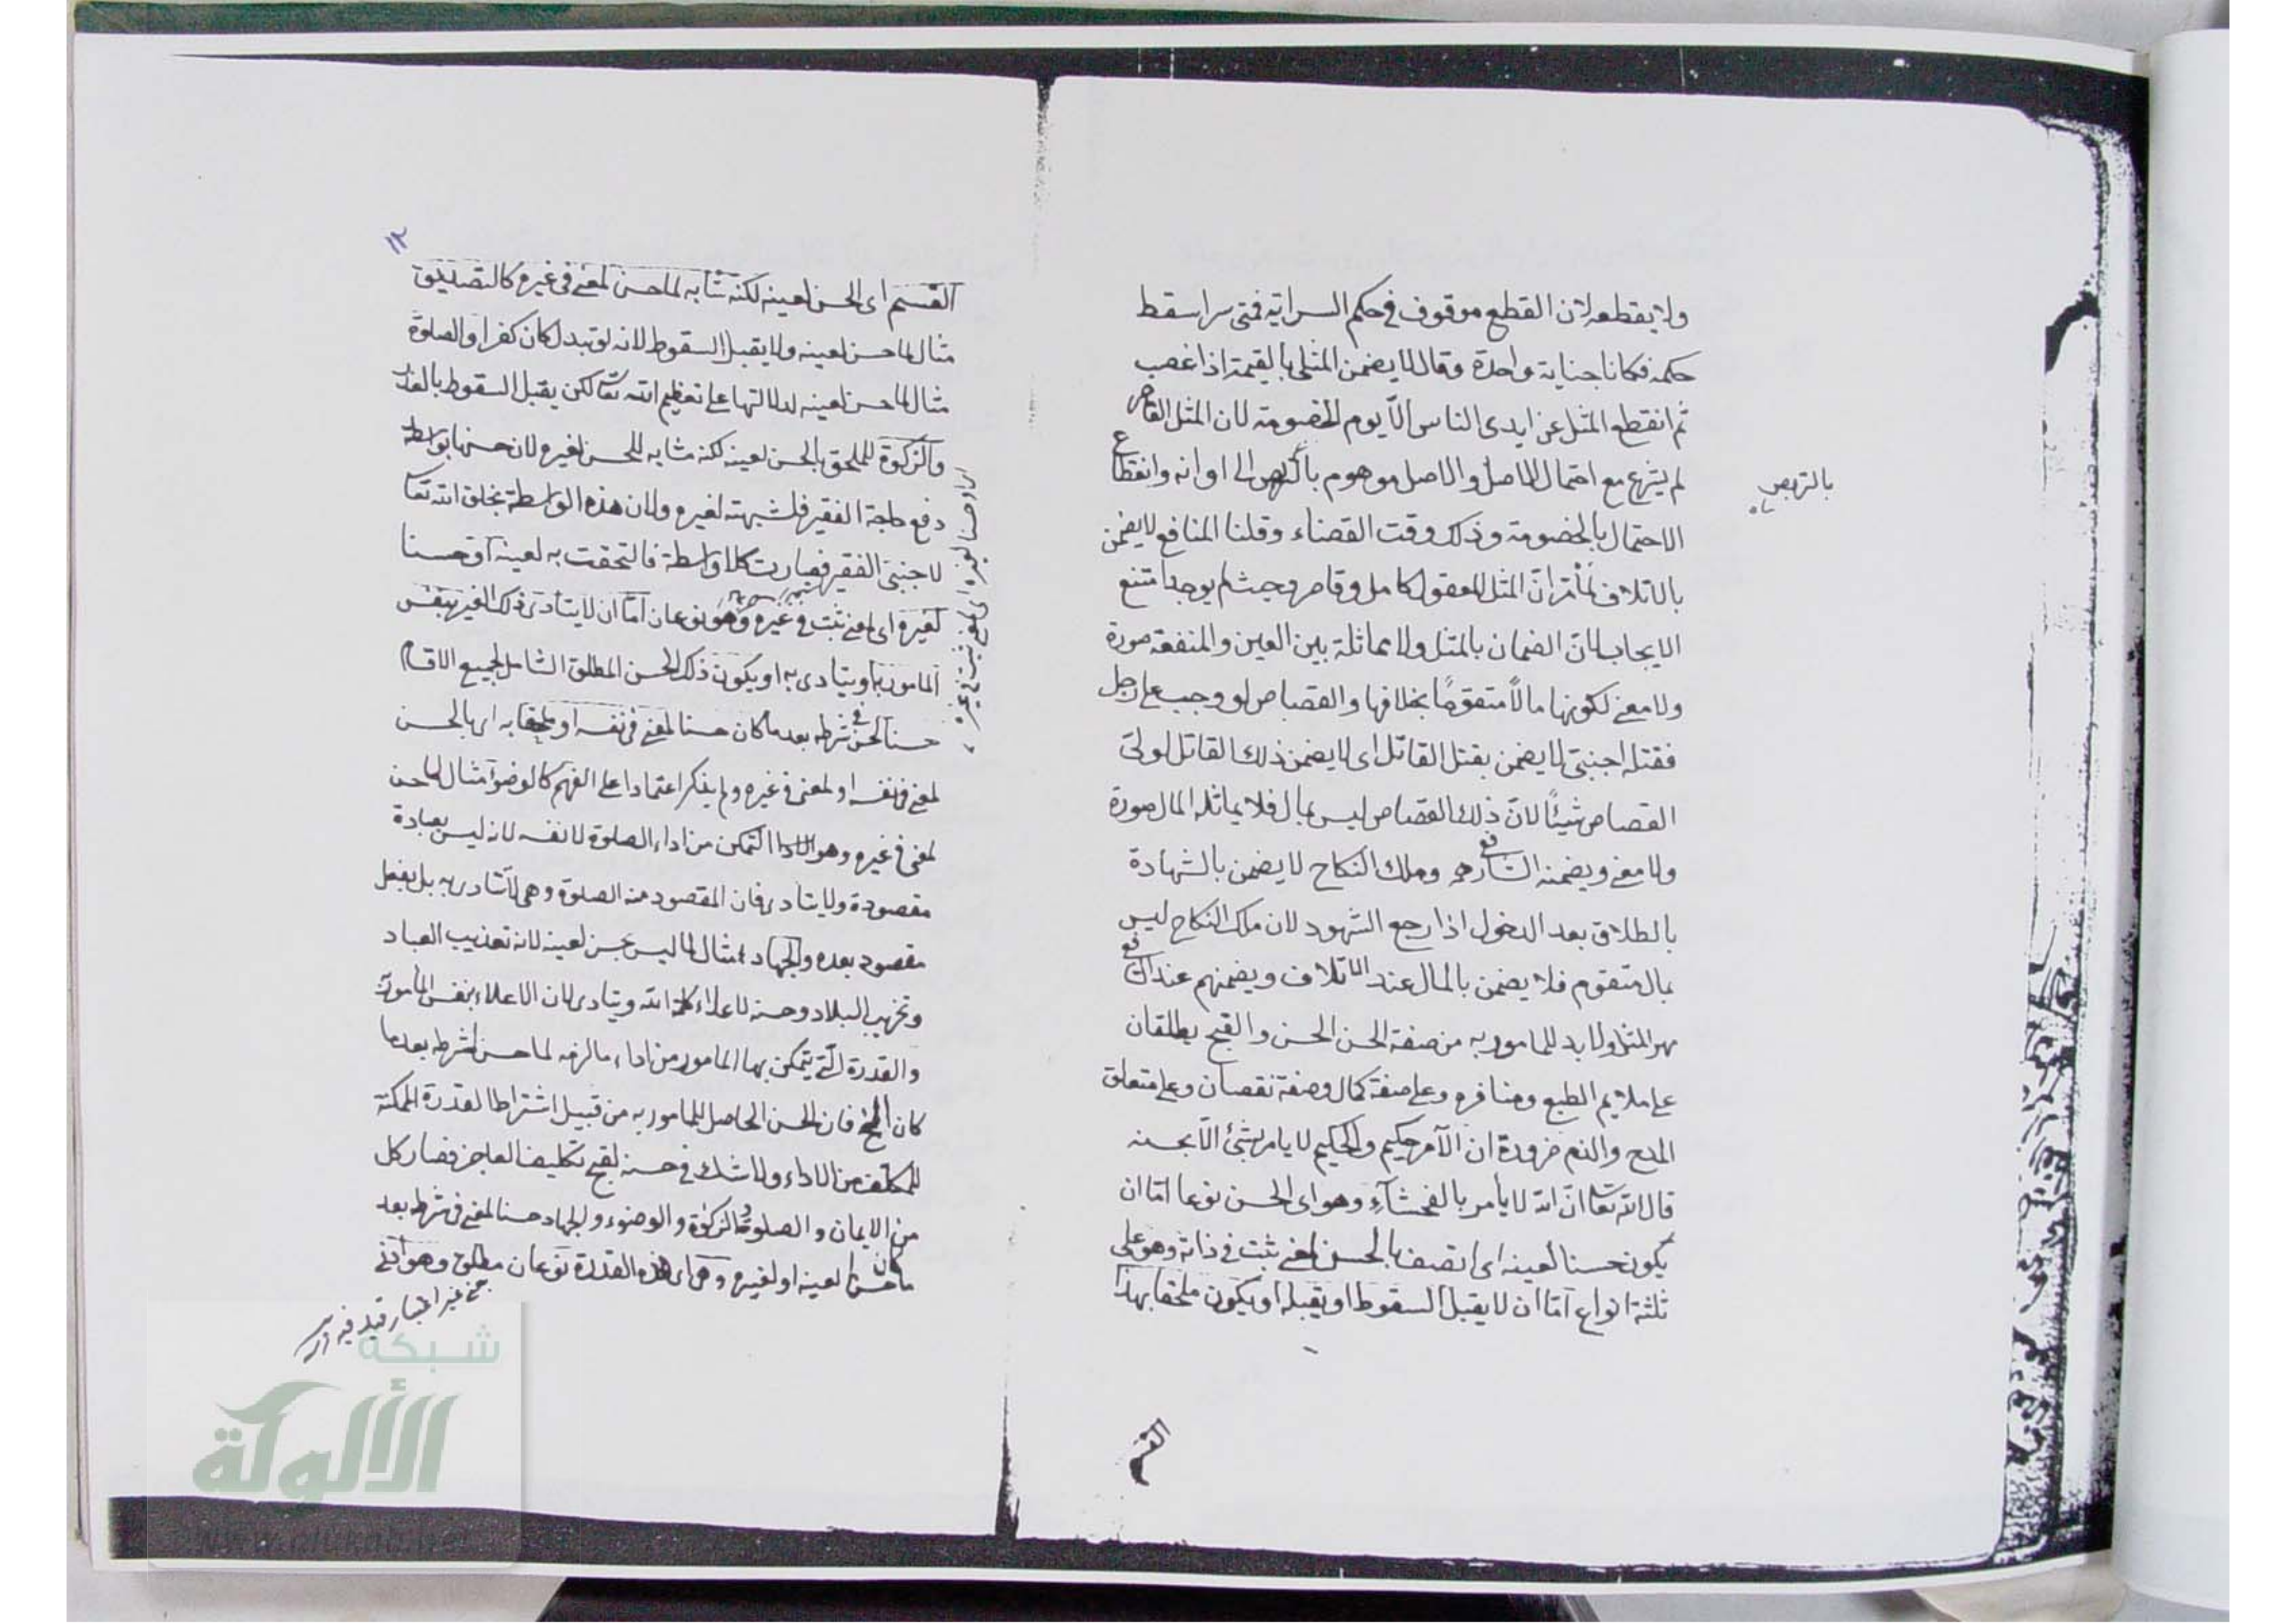 ولا يقطعه لان القطع موقوف في حكم السراية فمتى سرا سقط
حكمه فكانا جناية واحدة وقالا لا يضمن المثلي بالقيمة اذا غصب
ثم انقطع المثل عن ايدى الناس الّا يوم الخصومة لان المثل القاصر
لم يشرع مع احتمال الاصل والاصل موهوم بالتربص الى اوانه وانقطاع
بالتربص
الاحتمال بالخصومة وذلك وقت القضاء وقلنا المنافع لا يضمن
بالاتلاف لما مر انّ المثل المعقول كامل وقاصر وحيث لم يوجدا متنع
الايجاب لانّ الضمان بالمثل ولا مماثلة بين العين والمنفعة صورة
ولا معنى لكونها مالاً متقوماً بخلافها والقصاص لو وجب على رجل
فقتله اجنبى لا يضمن بقتل القاتل اى لا يضمن ذلك القاتل لولىّ
القصاص شيئًا لانّ ذلك القصاص ليس بمال فلا يماثله المال صورة
ولا معنى ويضمنه الشافعى وملك النكاح لا يضمن بالشهادة
بالطلاق بعد الدخول اذا رجع الشهود لان ملك النكاح ليس
بمال متقوم فلا يضمن بالمال عند الاتلاف ويضمنهم عند الشافعى
مهر المثل ولا بد للمامور به من صفة الحسن الحسن والقبح يطلقان
على ملايم الطبع ومنافره وعلى صفة كمال وصفة نقصان وعلى متعلق
المدح والذم ضرورة ان الآمر حكيم والحكيم لا يامر بشئ الّا بحسنه
قال الله تعا انّ الله لا يأمر بالفحشآء وهو اى الحسن نوعا امّا ان
يكون حسنا لعينه اى اتصف بالحسن لمعنى ثبت فى ذاته وهو على
ثلثة انواع امّا ان لا يقبل السقوط او يقبله او يكون ملحقا بهذا
القسم
١٢
القسم اى الحسن لعينه لكنه مشابه لما حسن لمعنى فى غيره كالتصديق
مثال لما حسن لعينه ولا يقبل السقوط لانه لو تبدل كان كفرا والصلوة
مثال لما حسن لعينه لدلالتها على تعظيم الله تعا لكن يقبل السقوط بالعذر
والزكوة للملحق بالحسن لعينه لكنه مشابه للحسن لغيره لان حسنها بواسطة
دفع حاجة الفقير فلشبهته لغيره ولان هذه الواسطة بخلق الله تعا
لا جنبى الفقير فصارت كلا واسطة فالتحقت به لعينه او حسنا
لغيره اى لمعنى ثبت فى غيره وهو نوعان امّا ان لا يتادى ذلك الغير بنفس
المامور به او يتادى به او يكون ذلك الحسن المطلق الشامل لجميع الاقسام
حسنا لحسن فى شرطه بعد ما كان حسنا لمعنى فى نفسه او ملحقا به اى بالحسن
لمعنى فى نفسه او لمعنى فى غيره ولم يذكر اعتمادا على الفهم كالوضوء مثال لما حسن
لمعنى فى غيره وهو التمكن من اداء الصلوة لا نفسه لانه ليس بعبادة
مقصودة ولا يتادى فان المقصود منه الصلوة وهى لا تتادى به بل بفعل
مقصود بعده والجهاد مثال لما ليس بحسن لعينه لانه تعذيب العباد
وتخريب البلاد وحسنه لاعلاء كلمة الله ويتادى لان الاعلاء بنفس المأمور به
والقدرة التى يتمكن بها المامور من اداء ما لزمه لما حسن لشرطه بعد ما
كان الخ فان الحسن الحاصل للمامور به من قبيل اشتراط القدرة الممكنة
للمكلف من الاداء ولا شك فى حسنه لقبح تكليف العاجز فصار كل
من الايمان والصلوة والزكوة والوضوء والجهاد حسنا لمعنى فى شرطه بعد
ما كان حسنا لعينه او لغيره وهى اى هذه القدرة نوعان مطلق وهو ادنى
غير اعتبار قيد فيه
او حسنا لغيره اى لمعنى ثبت فى غيره
شبكة
الألوكة
www.alukah.net